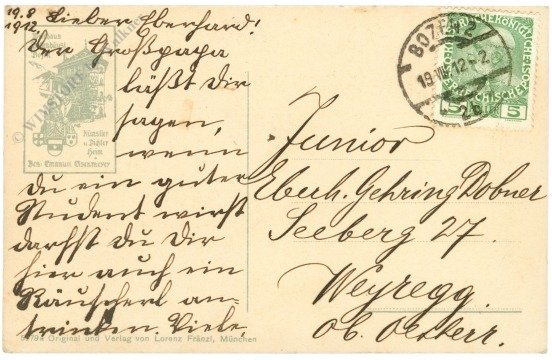 19.8
1912. Lieber Eberhard!
Der Großpapa
läßt Dir
sagen,
wenn
Du ein guter
Student wirst
darfst Du Dir
hier auch ein
Räuscherl an-
trinken. Viele,
Künstler
u. Dichter
Heim
Bes: Emanuel
5979a Original und Verlag von Lorenz Fränzl, München
BOZEN 2
19.VIII.12-2
2b
5 5
Junior
Eberh. Gehring Dobner
Seeberg 27.
Weyregg.
Ob. Oesterr.